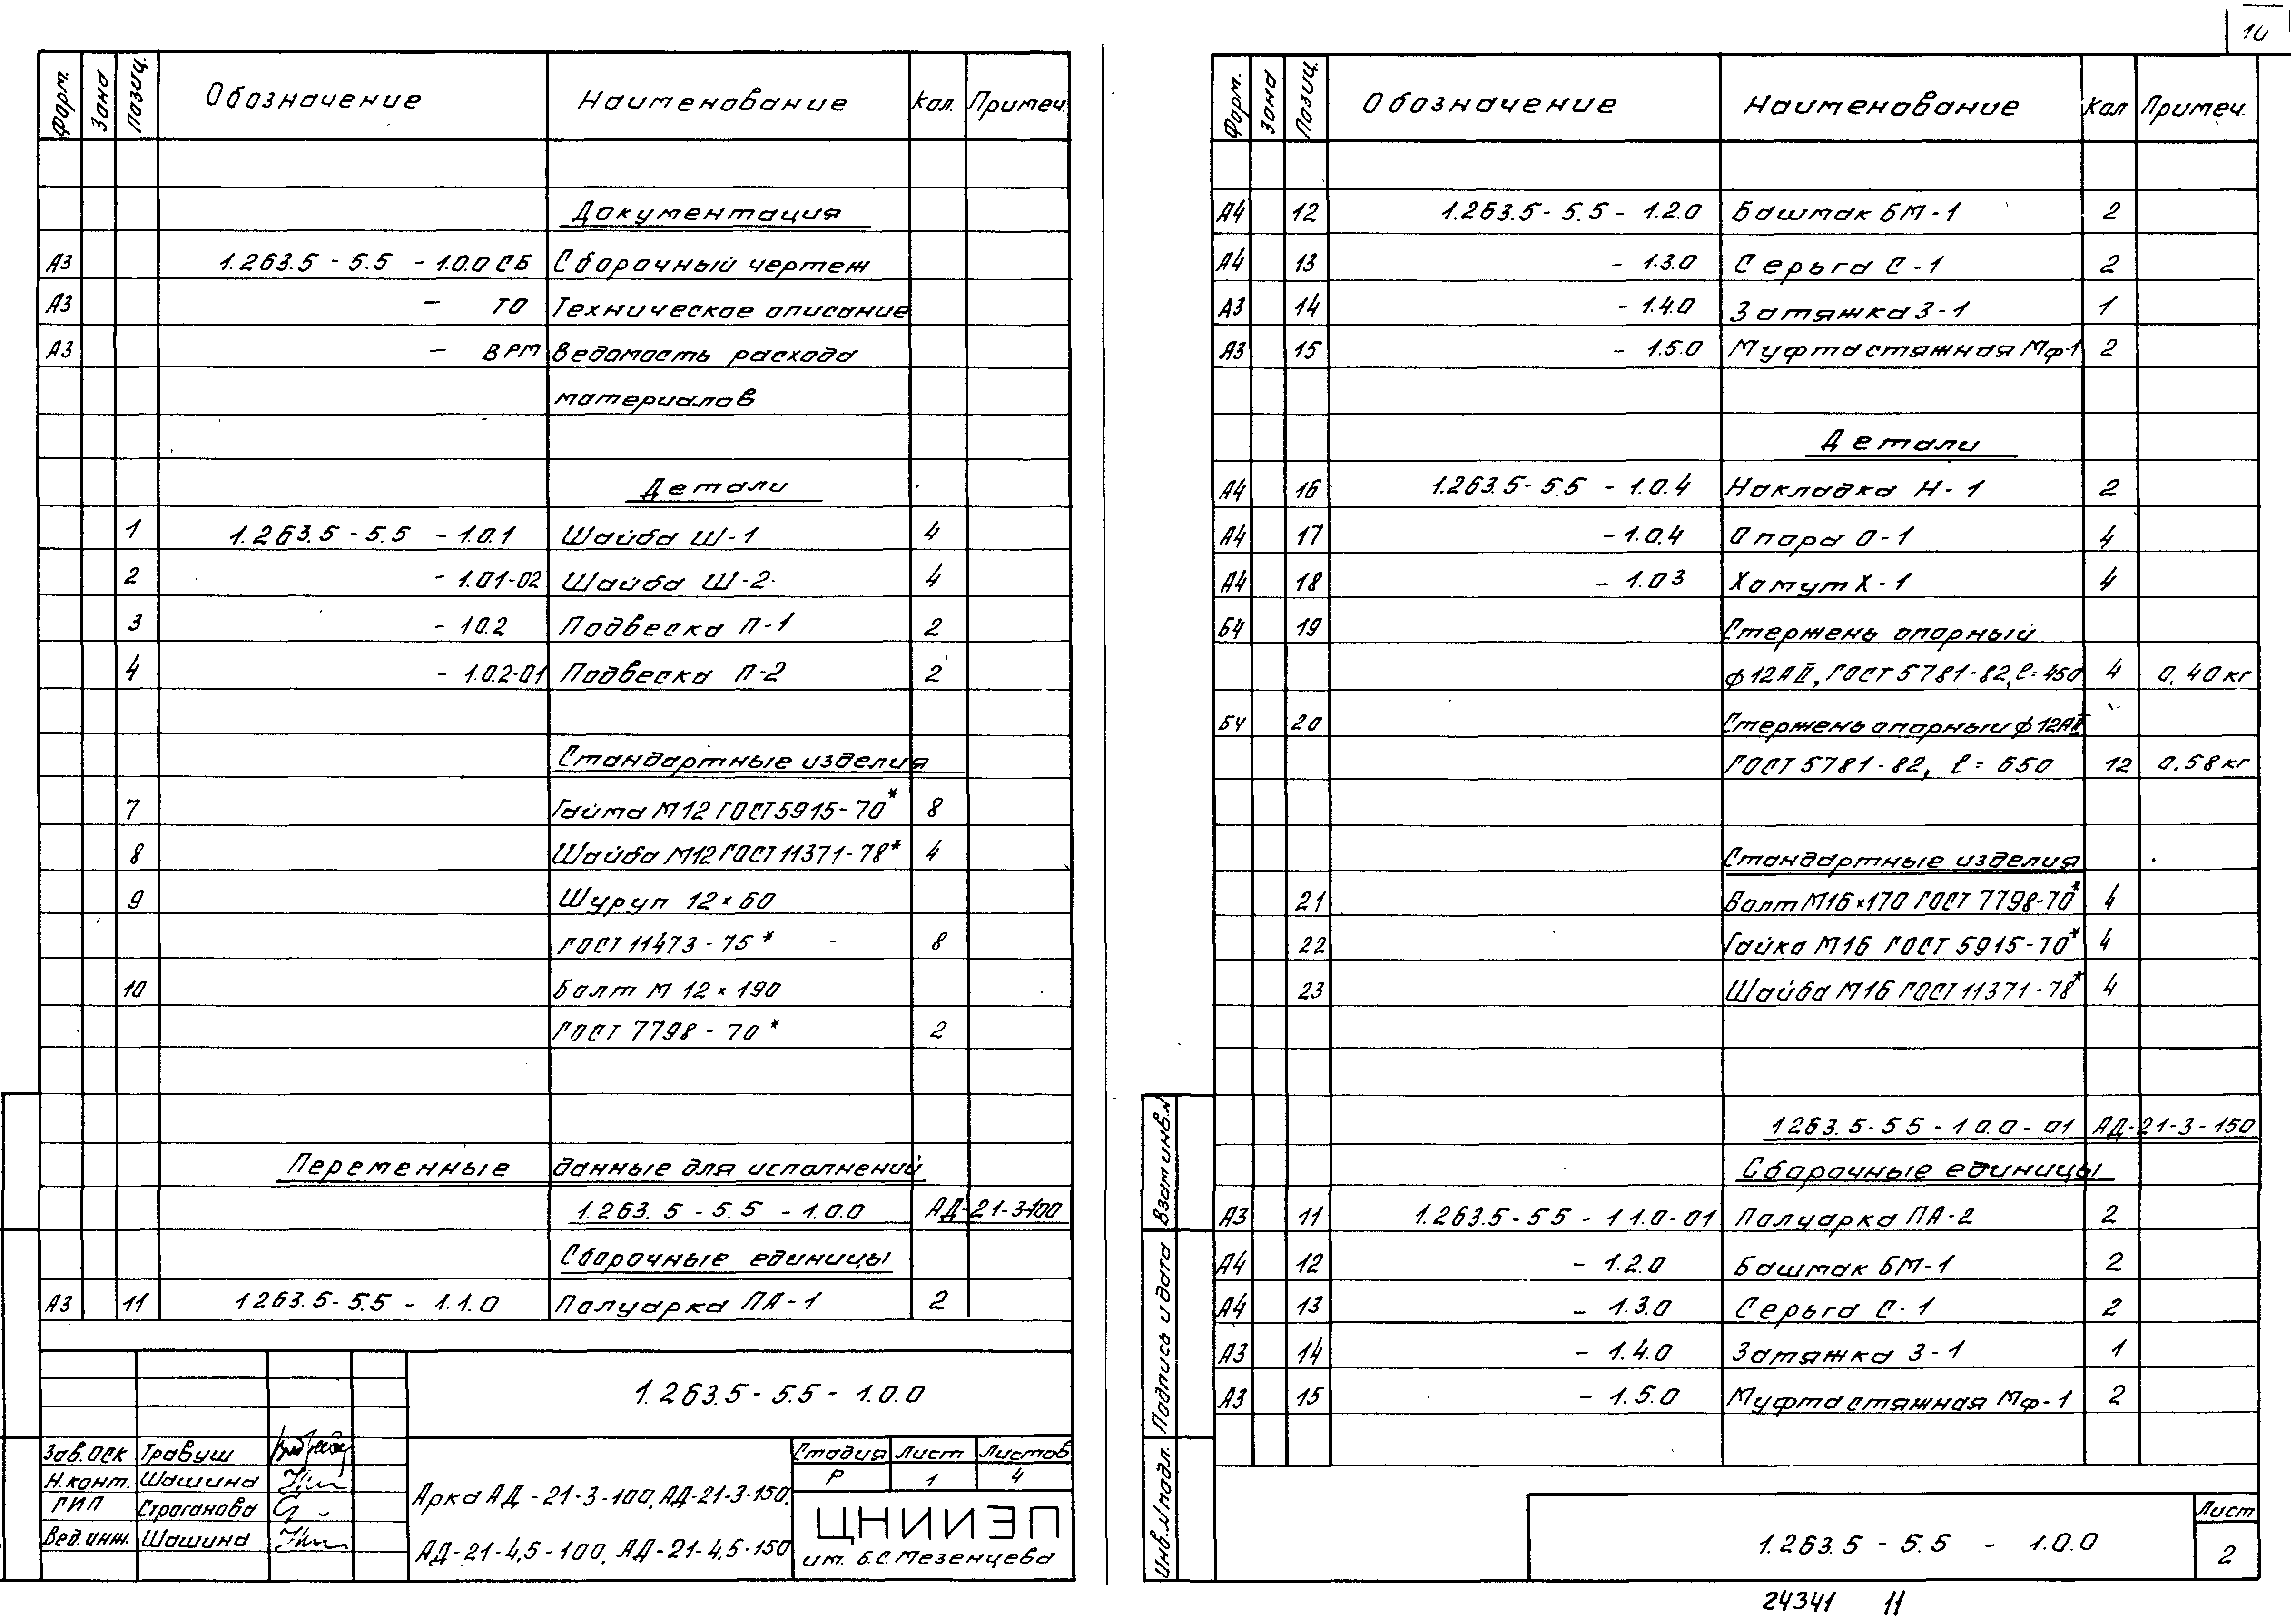 10
Форм. Зона Позиц. Обозначение Наименование Кол. Примеч.
Документация
А3 1.263.5 - 5.5 - 1.0.0 СБ Сборочный чертеж
А3 - ТО Техническое описание
А3 - ВРМ Ведомость расхода
материалов
Детали
1 1.263.5 - 5.5 - 1.0.1 Шайба Ш-1 4
2 - 1.01-02 Шайба Ш-2 4
3 - 1.0.2 Подвеска П-1 2
4 - 1.0.2-01 Подвеска П-2 2
Стандартные изделия
7 Гайта М12 ГОСТ 5915-70* 8
8 Шайба М12 ГОСТ 11371-78* 4
9 Шуруп 12×60
ГОСТ 11473-75* - 8
10 Болт М 12×190
ГОСТ 7798-70* 2
Переменные данные для исполнений
1.263.5 - 5.5 - 1.0.0 АД-21-3-100
Сборочные единицы
А3 11 1263.5-5.5 - 1.1.0 Полуарка ПА-1 2
1.263.5 - 5.5 - 1.0.0
Зав.ОСК Травуш
Н.конт. Шашина
ГИП Строганова
Вед.инж. Шашина
Арка АД-21-3-100, АД-21-3-150,
АД-21-4,5-100, АД-21-4,5-150
Стадия Лист Листов
Р 1 4
ЦНИИЭП
им. Б.С. Мезенцева
Форм. Зона Позиц. Обозначение Наименование Кол Примеч.
А4 12 1.263.5 - 5.5 - 1.2.0 Башмак БМ-1 2
А4 13 - 1.3.0 Серьга С-1 2
А3 14 - 1.4.0 Затяжка З-1 1
А3 15 - 1.5.0 Муфта стяжная Мф-1 2
Детали
А4 16 1.263.5 - 5.5 - 1.0.4 Накладка Н-1 2
А4 17 - 1.0.4 Опора О-1 4
А4 18 - 1.03 Хомут Х-1 4
Б4 19 Стержень опорный
ф12АII, ГОСТ 5781-82, ℓ=450 4 0,40кг
БЧ 20 Стержень опорный ф12АII
ГОСТ 5781-82, ℓ=650 12 0,58кг
Стандартные изделия
21 Болт М16×170 ГОСТ 7798-70* 4
22 Гайка М16 ГОСТ 5915-70* 4
23 Шайба М16 ГОСТ 11371-78* 4
1263.5-55-10.0-01 АД-21-3-150
Сборочные единицы
А3 11 1.263.5-55-11.0-01 Полуарка ПА-2 2
А4 12 - 1.2.0 Башмак БМ-1 2
А4 13 - 1.3.0 Серьга С-1 2
А3 14 - 1.4.0 Затяжка З-1 1
А3 15 - 1.5.0 Муфта стяжная Мф-1 2
Взам инв.№
Подпись и дата
Инв.№ подл.
1.263.5 - 5.5 - 1.0.0
Лист
2
24341 11